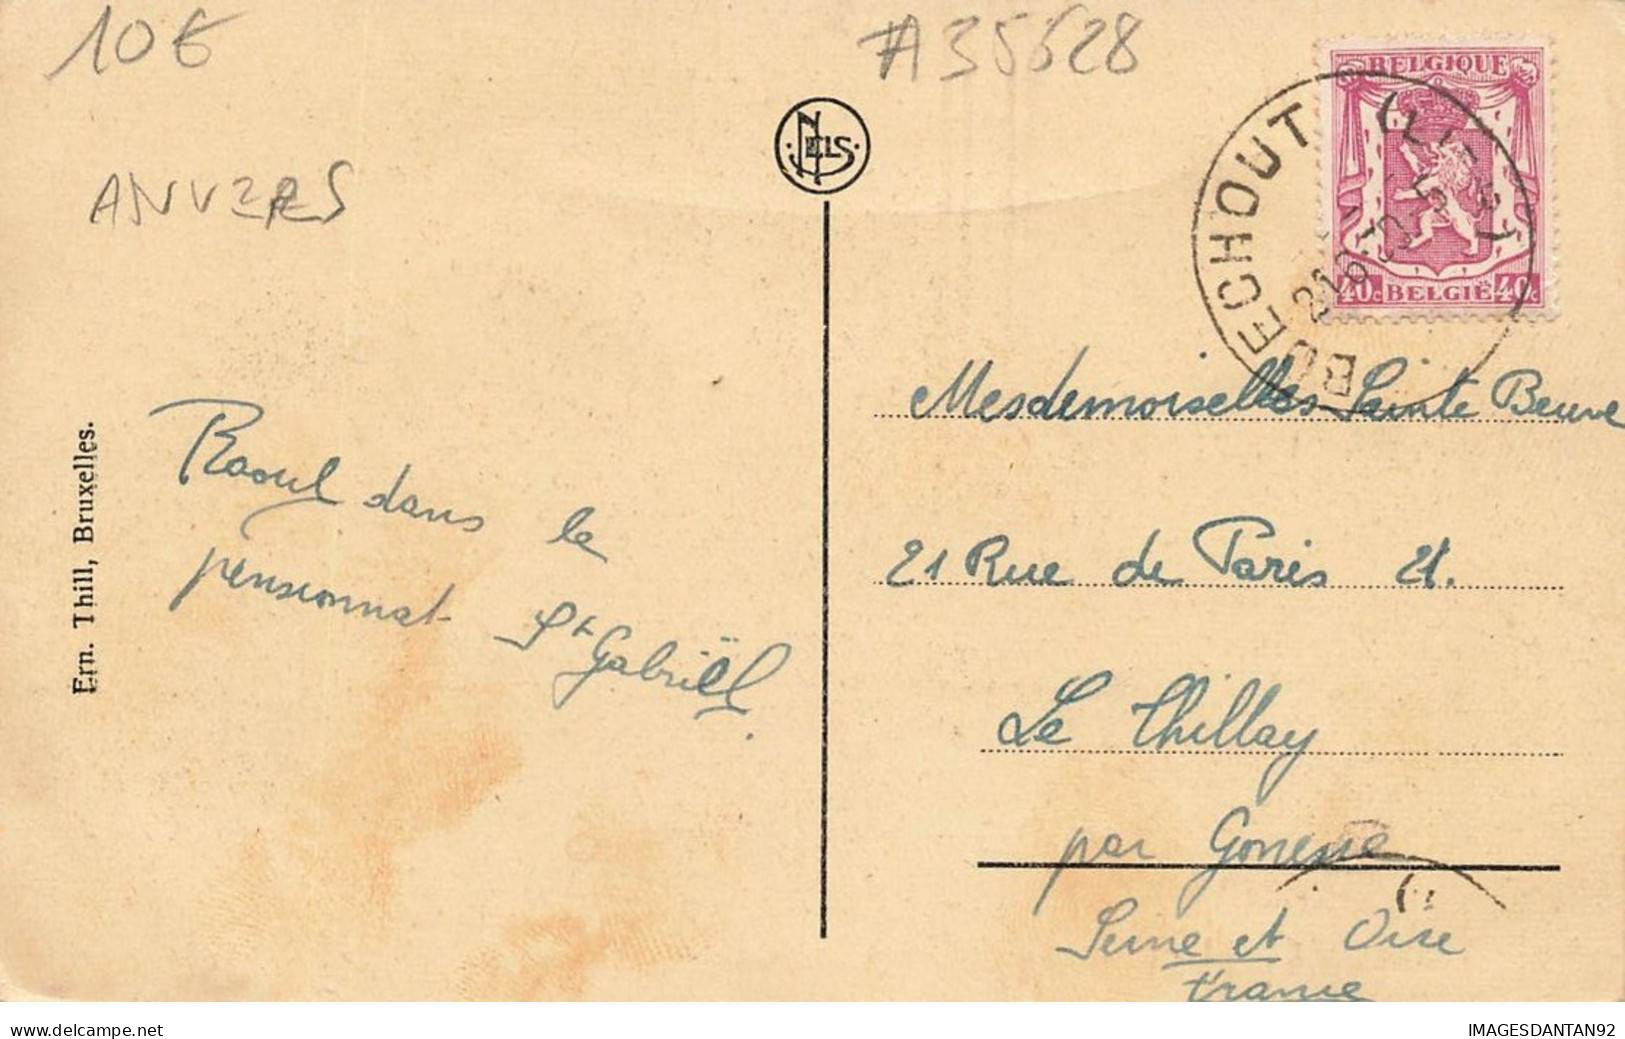 10€
#A35628
ANVERS
NELS
BELGIQUE
40c BELGIË 40c
BOECHOUT
Raoul dans le
pensionnat St Gabriël.
Mesdemoiselles Sainte Beuve
21 Rue de Paris 21.
Le Thillay
par Gonesse
Seine et Oise
France
Ern. Thill, Bruxelles.
www.delcampe.net
IMAGESDANTAN92